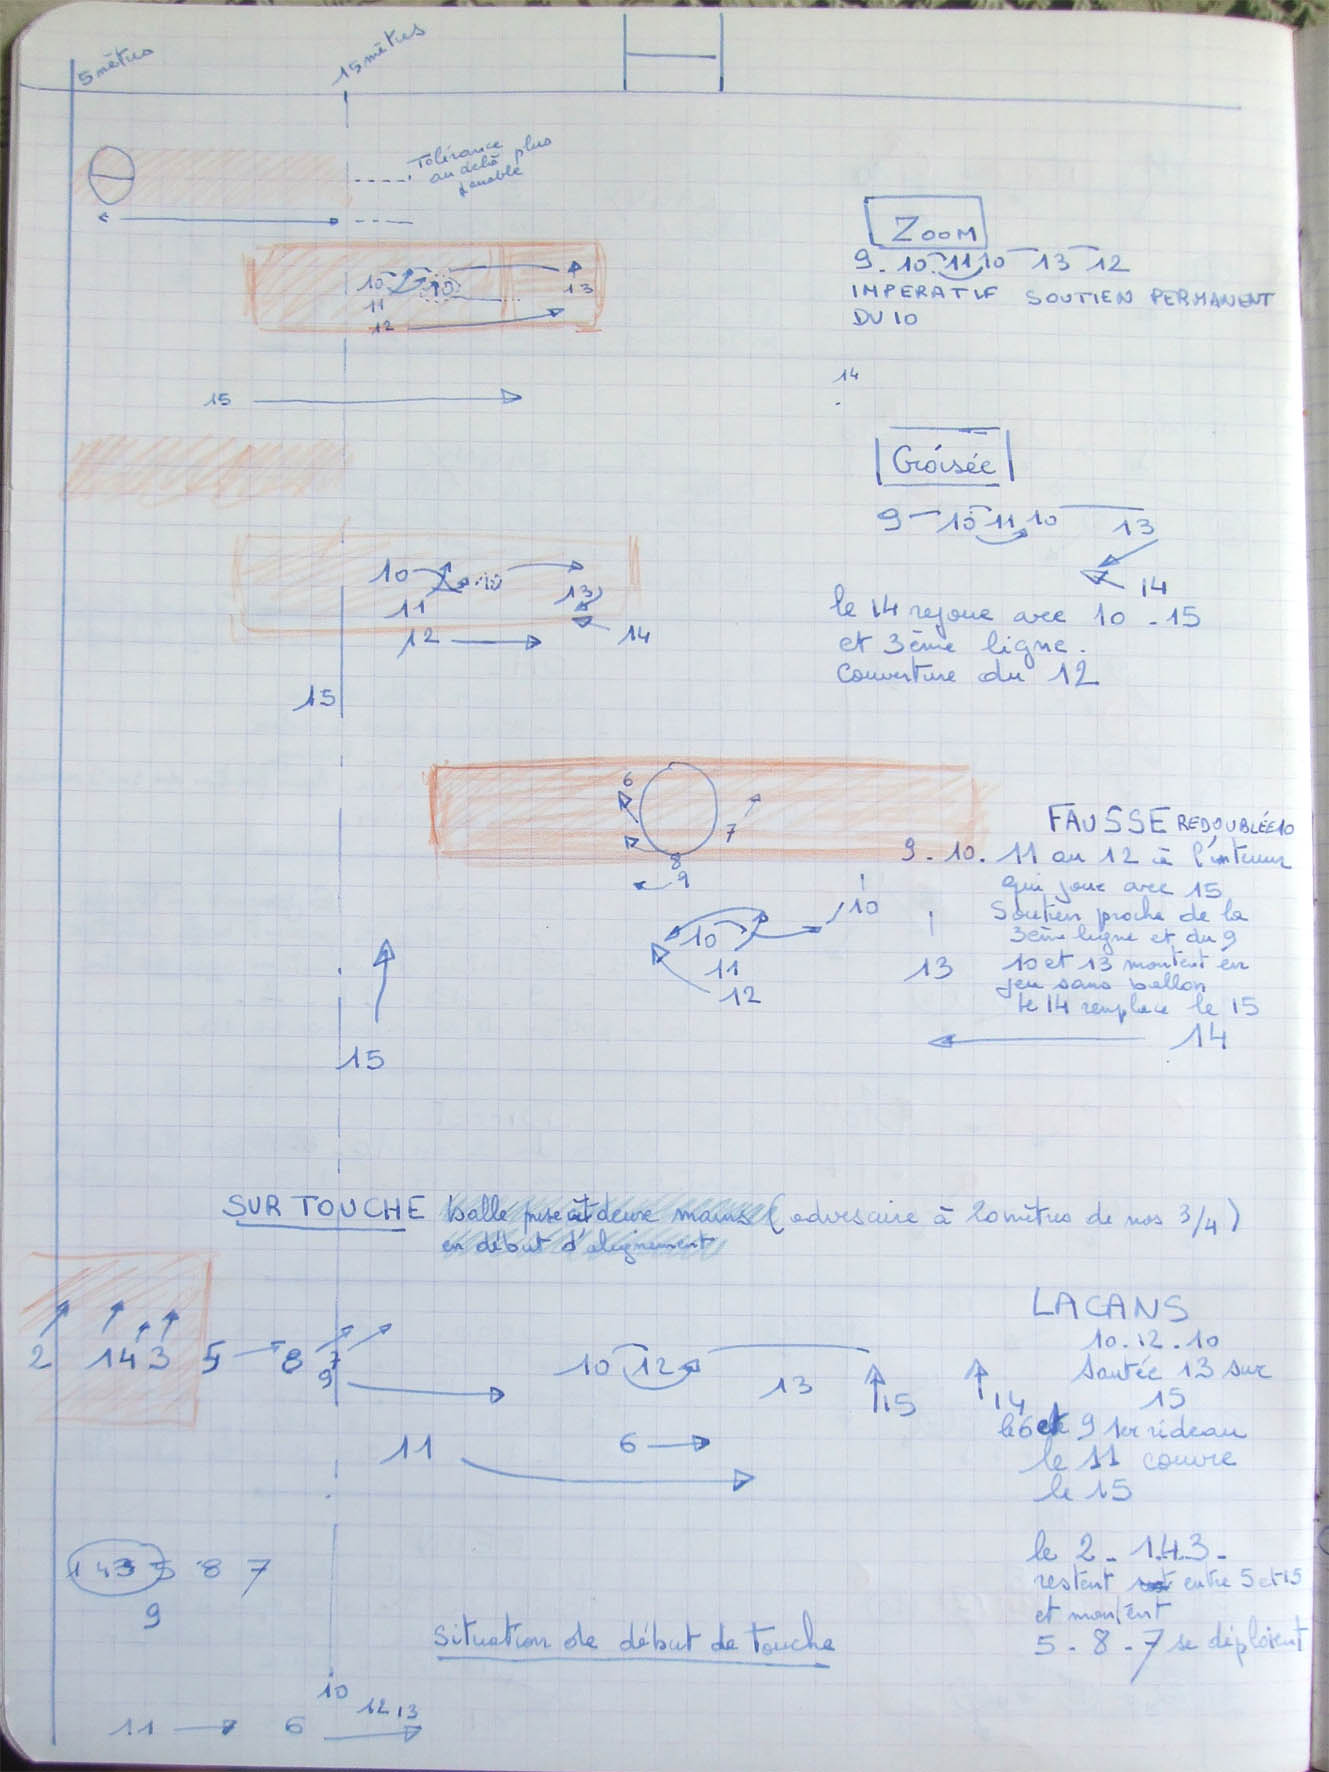 5 mètres
15 mètres
Tolérance
au delà plus
jouable
Zoom
9. 10 11 10 13 12
IMPERATIF SOUTIEN PERMANENT
DU 10
10 10
11
12
13
15
14
Croisée
9 10 11 10 13
14
le 14 rejoue avec 10 - 15
et 3ème ligne.
couverture du 12
10 10
11
12
13
14
15
FAUSSE REDOUBLÉE 10
9. 10. 11 ou 12 à l'intérieur
qui joue avec 15
Soutien proche de la
3ème ligne et du 9
10 et 13 montent en
jeu sans ballon
le 14 remplace le 15
6
7
8
9
10
10
11
12
13
14
15
SUR TOUCHE balle prise à deux mains (adversaire à 20 mètres de nos 3/4)
en début d'alignement
LACANS
10. 12. 10
Sautée 13 sur
15
le 6 et 9 1er rideau
le 11 couvre
le 15
2 1 4 3 5 8 7
9
10 12
13
15
14
11
6
le 2 - 1.4.3 -
restent entre 5 et 15
et montent
5 - 8 - 7 se déploient
1 4 3 5 8 7
9
situation de début de touche
10
12 13
11 6